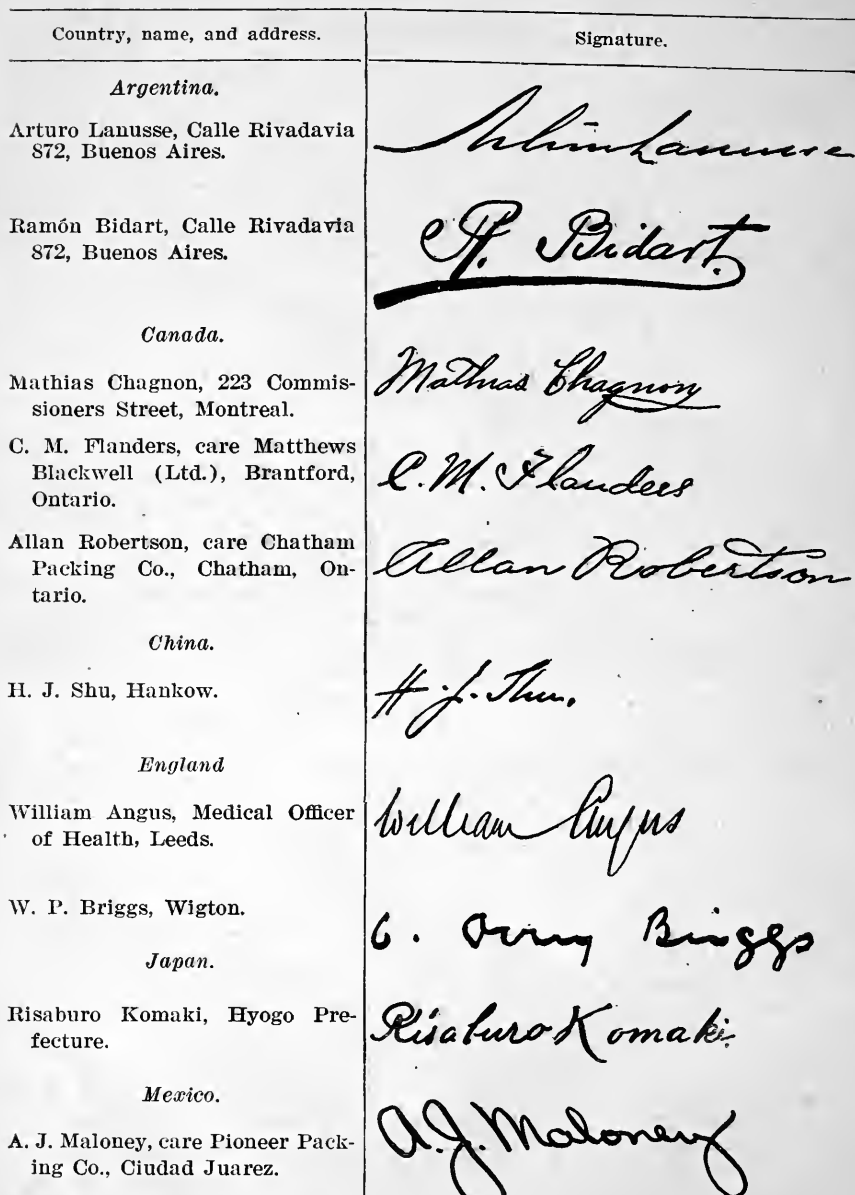 Country, name, and address.
Signature.
Argentina.
Arturo Lanusse, Calle Rivadavia
872, Buenos Aires.
Lanusse
Ramón Bidart, Calle Rivadavia
872, Buenos Aires.
R. Bidart.
Canada.
Mathias Chagnon, 223 Commis-
sioners Street, Montreal.
Mathias Chagnon
C. M. Flanders, care Matthews
Blackwell (Ltd.), Brantford,
Ontario.
C. M. Flanders
Allan Robertson, care Chatham
Packing Co., Chatham, On-
tario.
Allan Robertson
China.
H. J. Shu, Hankow.
H. J. Shu.
England
William Angus, Medical Officer
of Health, Leeds.
William Angus
W. P. Briggs, Wigton.
Briggs
Japan.
Risaburo Komaki, Hyogo Pre-
fecture.
Risaburo Komaki.
Mexico.
A. J. Maloney, care Pioneer Pack-
ing Co., Ciudad Juarez.
A. J. Maloney